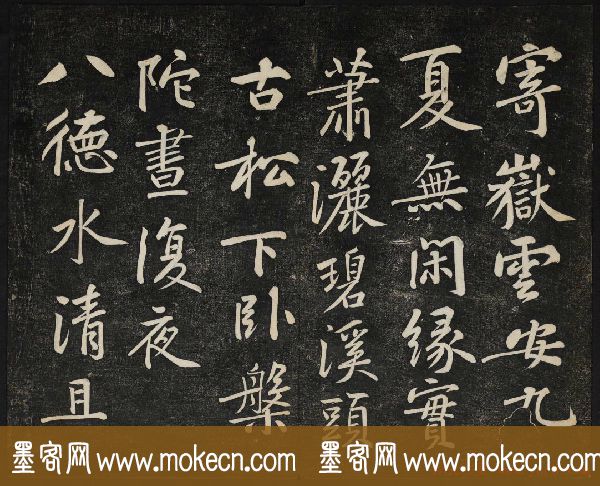 寄嶽雲安九
夏無閑緣實
蕭灑碧溪頭
古松下卧槃
陀晝復夜
八德水清且
墨客网 www.mokecn.com 墨客网 www.mokecn.com